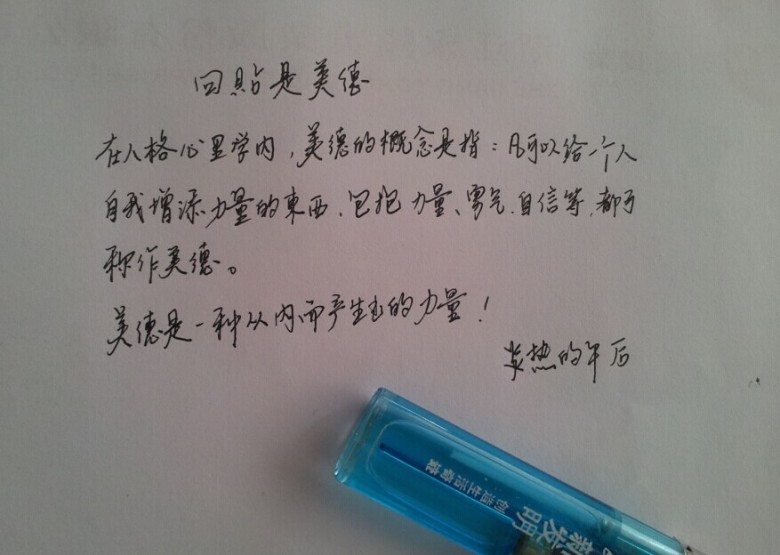 回貼是美德
在人格心里学内，美德的概念是指：凡可以给一个人
自我增添力量的東西，包抱力量、勇气、自信等，都可
称作美德。
美德是一种从内而产生出的力量！
炎热的午后
创造生活奇迹
新发明